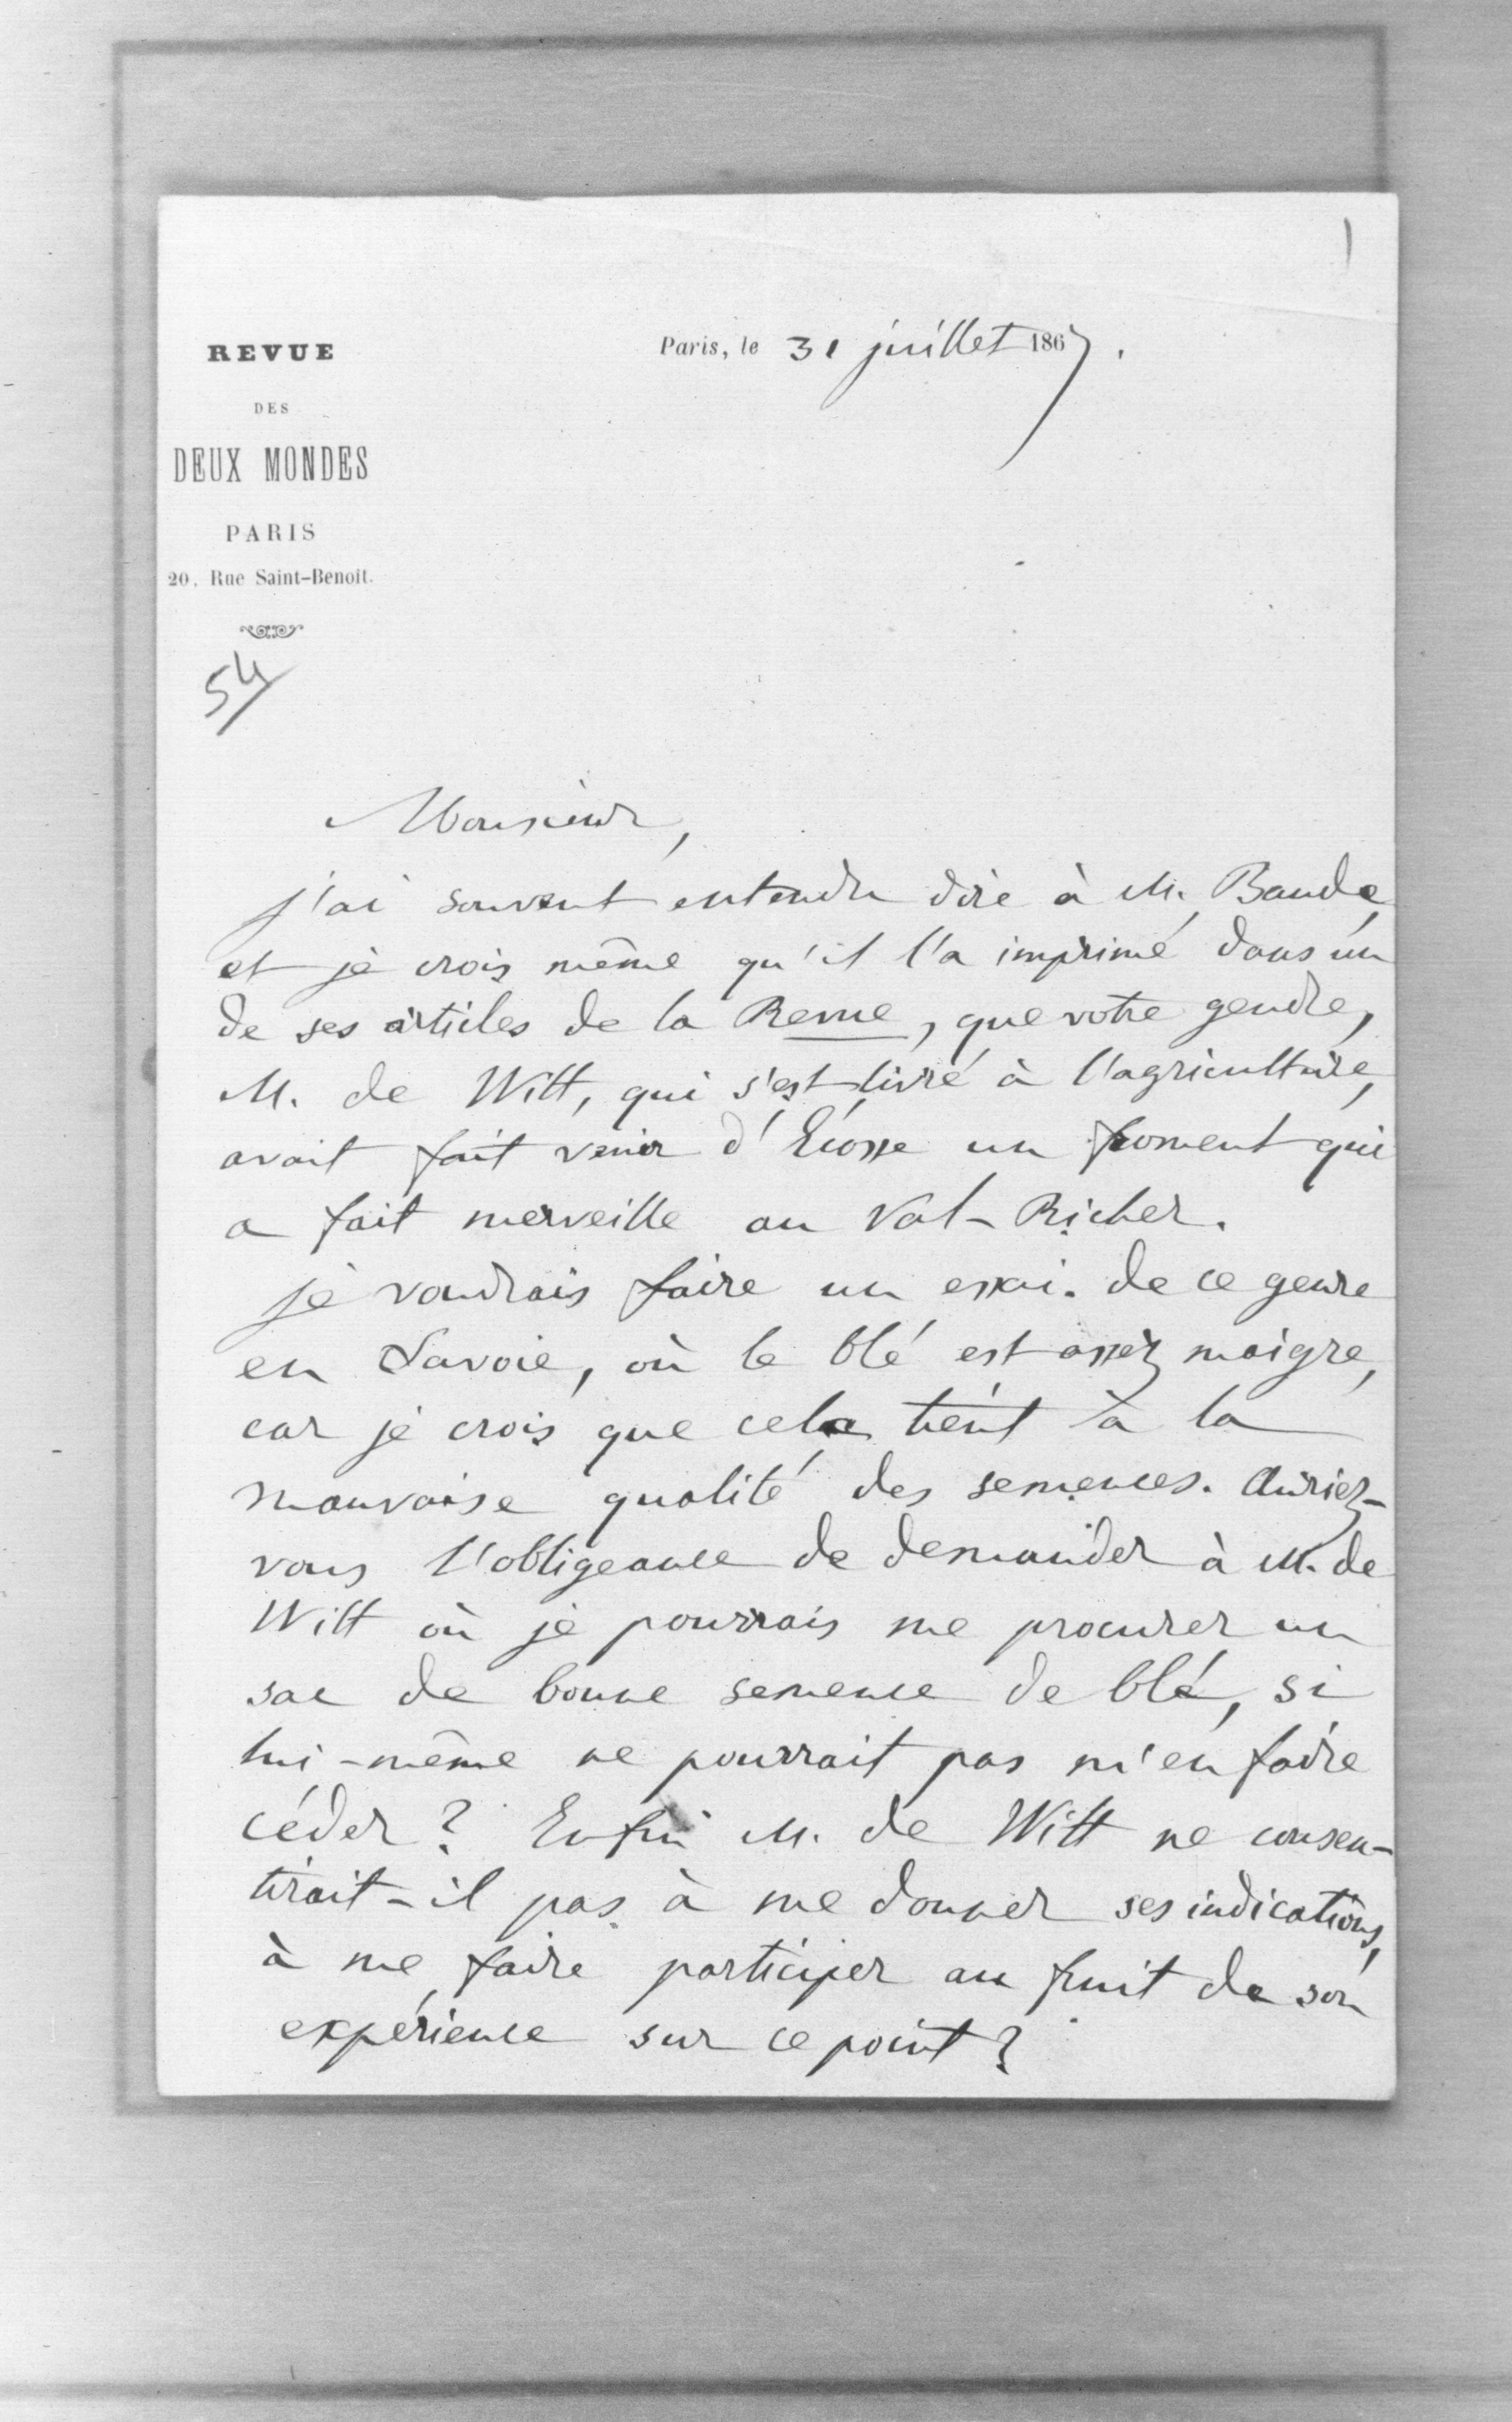 1
REVUE
DES
DEUX MONDES
PARIS
20, Rue Saint-Benoit.
Paris, le 31 juillet 1867.
54
Monsieur,
j'ai souvent entendu dire à M. Baude,
et je crois même qu'il l'a imprimé dans un
de ses articles de la Revue, que votre gendre,
M. de Witt, qui s'est livré à l'agriculture,
avait fait venir d'Ecosse un froment qui
a fait merveille au Val-Richer.
je voudrais faire un essai de ce genre
en Savoie, où le blé est assez maigre,
car je crois que cela tient à la
mauvaise qualité des semences. Auriez-
vous l'obligeance de demander à M. de
Witt où je pourrais me procurer un
sac de bonne semence de blé, si
lui-même ne pourrait pas m'en faire
céder ? Enfin M. de Witt ne consen-
tirait-il pas à me donner ses indications,
à me faire participer au fruit de son
expérience sur ce point ?